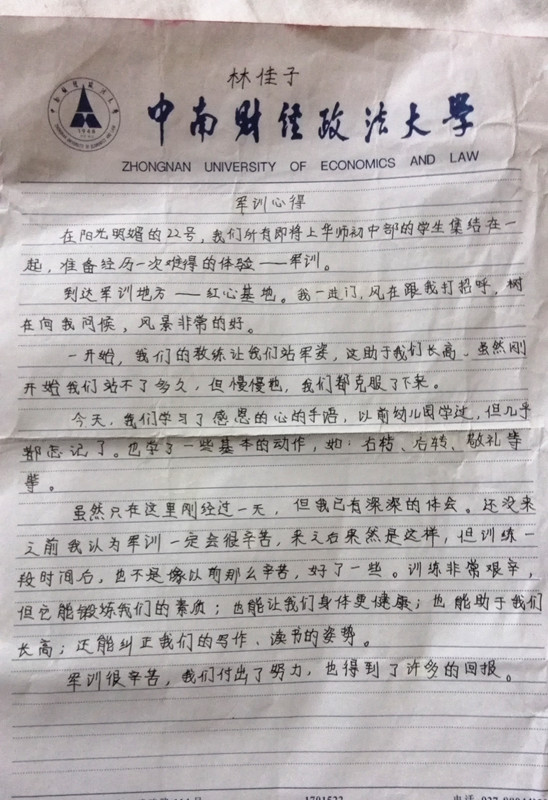 林佳子
中南财经政法大学
ZHONGNAN UNIVERSITY OF ECONOMICS AND LAW
军训心得
在阳光明媚的22号，我们所有即将上华师初中部的学生集结在一
起，准备经历一次难得的体验——军训。
到达军训地方——红心基地。我一进门，风在跟我打招呼，树
在向我问候，风景非常的好。
一开始，我们的教练让我们站军姿，这助于我们长高。虽然刚
开始我们站不了多久，但慢慢地，我们都克服了下来。
今天，我们学习了感恩的心的手语，以前幼儿园学过，但几乎
都忘记了。也学了一些基本的动作，如：右转、后转、敬礼等
等。
虽然只在这里刚经过一天，但我已有深深的体会。还没来
之前我认为军训一定会很辛苦，来之后果然是这样，但训练一
段时间后，也不是像以前那么辛苦，好了一些。训练非常艰辛，
但它能锻炼我们的素质；也能让我们身体更健康；也能助于我们
长高；还能纠正我们的写作、读书的姿势。
军训很辛苦，我们付出了努力，也得到了许多的回报。
1701522